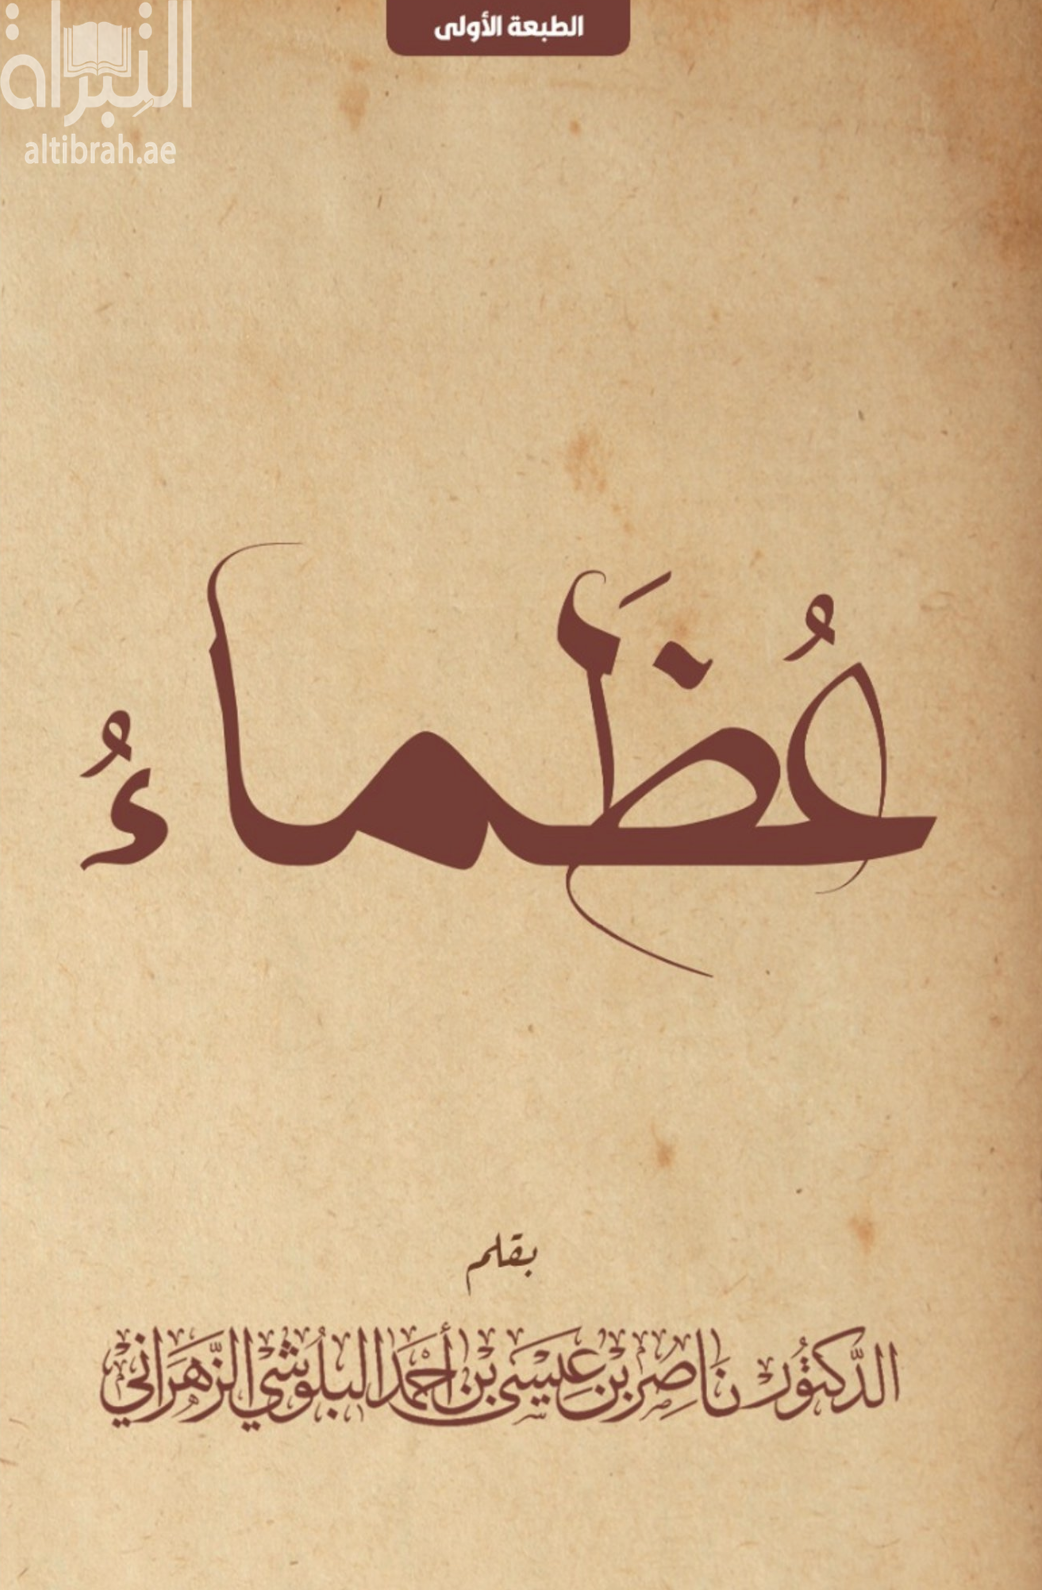 الطبعة الأولى
التبراة
altibrah.ae
عُظَماءُ
بقلم
الدَّكتُور نَاصِر بْن عِيسَى بْن أَحْمَد البلُوشي الزَّهَرَاني